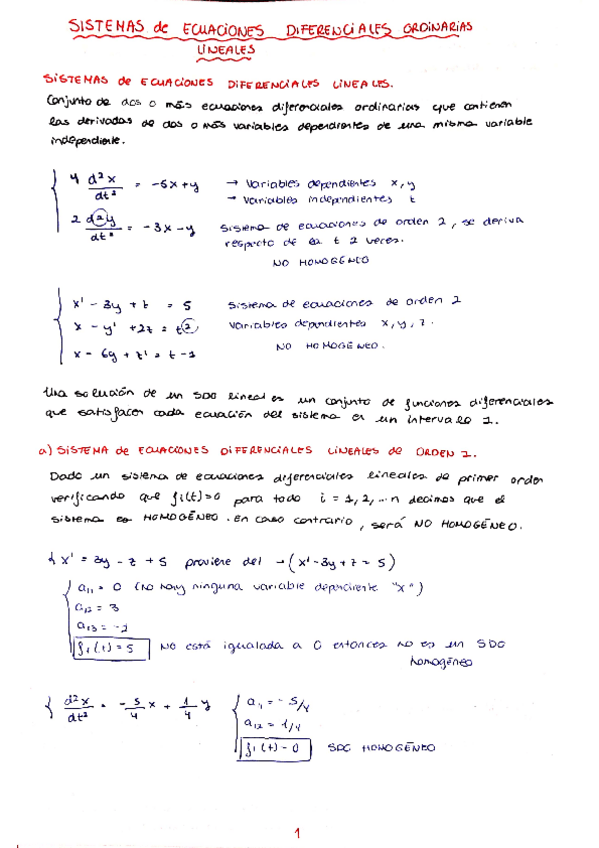 SISTEMAS de ECUACIONES DIFERENCIALES ORDINARIAS
LINEALES
SISTEMAS de ECUACIONES DIFERENCIALES LINEALES.
Conjunto de dos o más ecuaciones diferenciales ordinarias que contienen
las derivadas de dos o más variables dependientes de una misma variable
independiente.
4 d²x/dt² = -5x+y → Variables dependientes x, y
→ Variables independientes t
2 d²y/dt² = -3x-y Sistema de ecuaciones de orden 2, se deriva
respecto de la t 2 veces.
NO HOMOGÉNEO
x' - 3y + z = 5 Sistema de ecuaciones de orden 2
x - y' + 2z = t² Variables dependientes x, y, z.
x - 6y + z' = t - 1 NO HOMOGÉNEO.
Una solución de un SDO lineal es un conjunto de funciones diferenciales
que satisfacen cada ecuación del sistema en un intervalo I.
a) SISTEMA de ECUACIONES DIFERENCIALES LINEALES de ORDEN 1.
Dado un sistema de ecuaciones diferenciales lineales de primer orden
verificando que fi(t)=0 para todo i = 1, 2, ... n decimos que el
sistema es HOMOGÉNEO. En caso contrario, será NO HOMOGÉNEO.
{ x' = 3y - z + 5 proviene del → (x' - 3y + z = 5)
a₁₁ = 0 (No hay ninguna variable dependiente "x")
a₁₂ = 3
a₁₃ = -1
f₁(t) = 5 NO está igualada a 0 entonces no es un SDO
homogéneo
{ d²x/dt² = -5/4 x + 1/4 y a₁₁ = -5/4
a₁₂ = 1/4
f₁(t) = 0 SDO HOMOGÉNEO
1